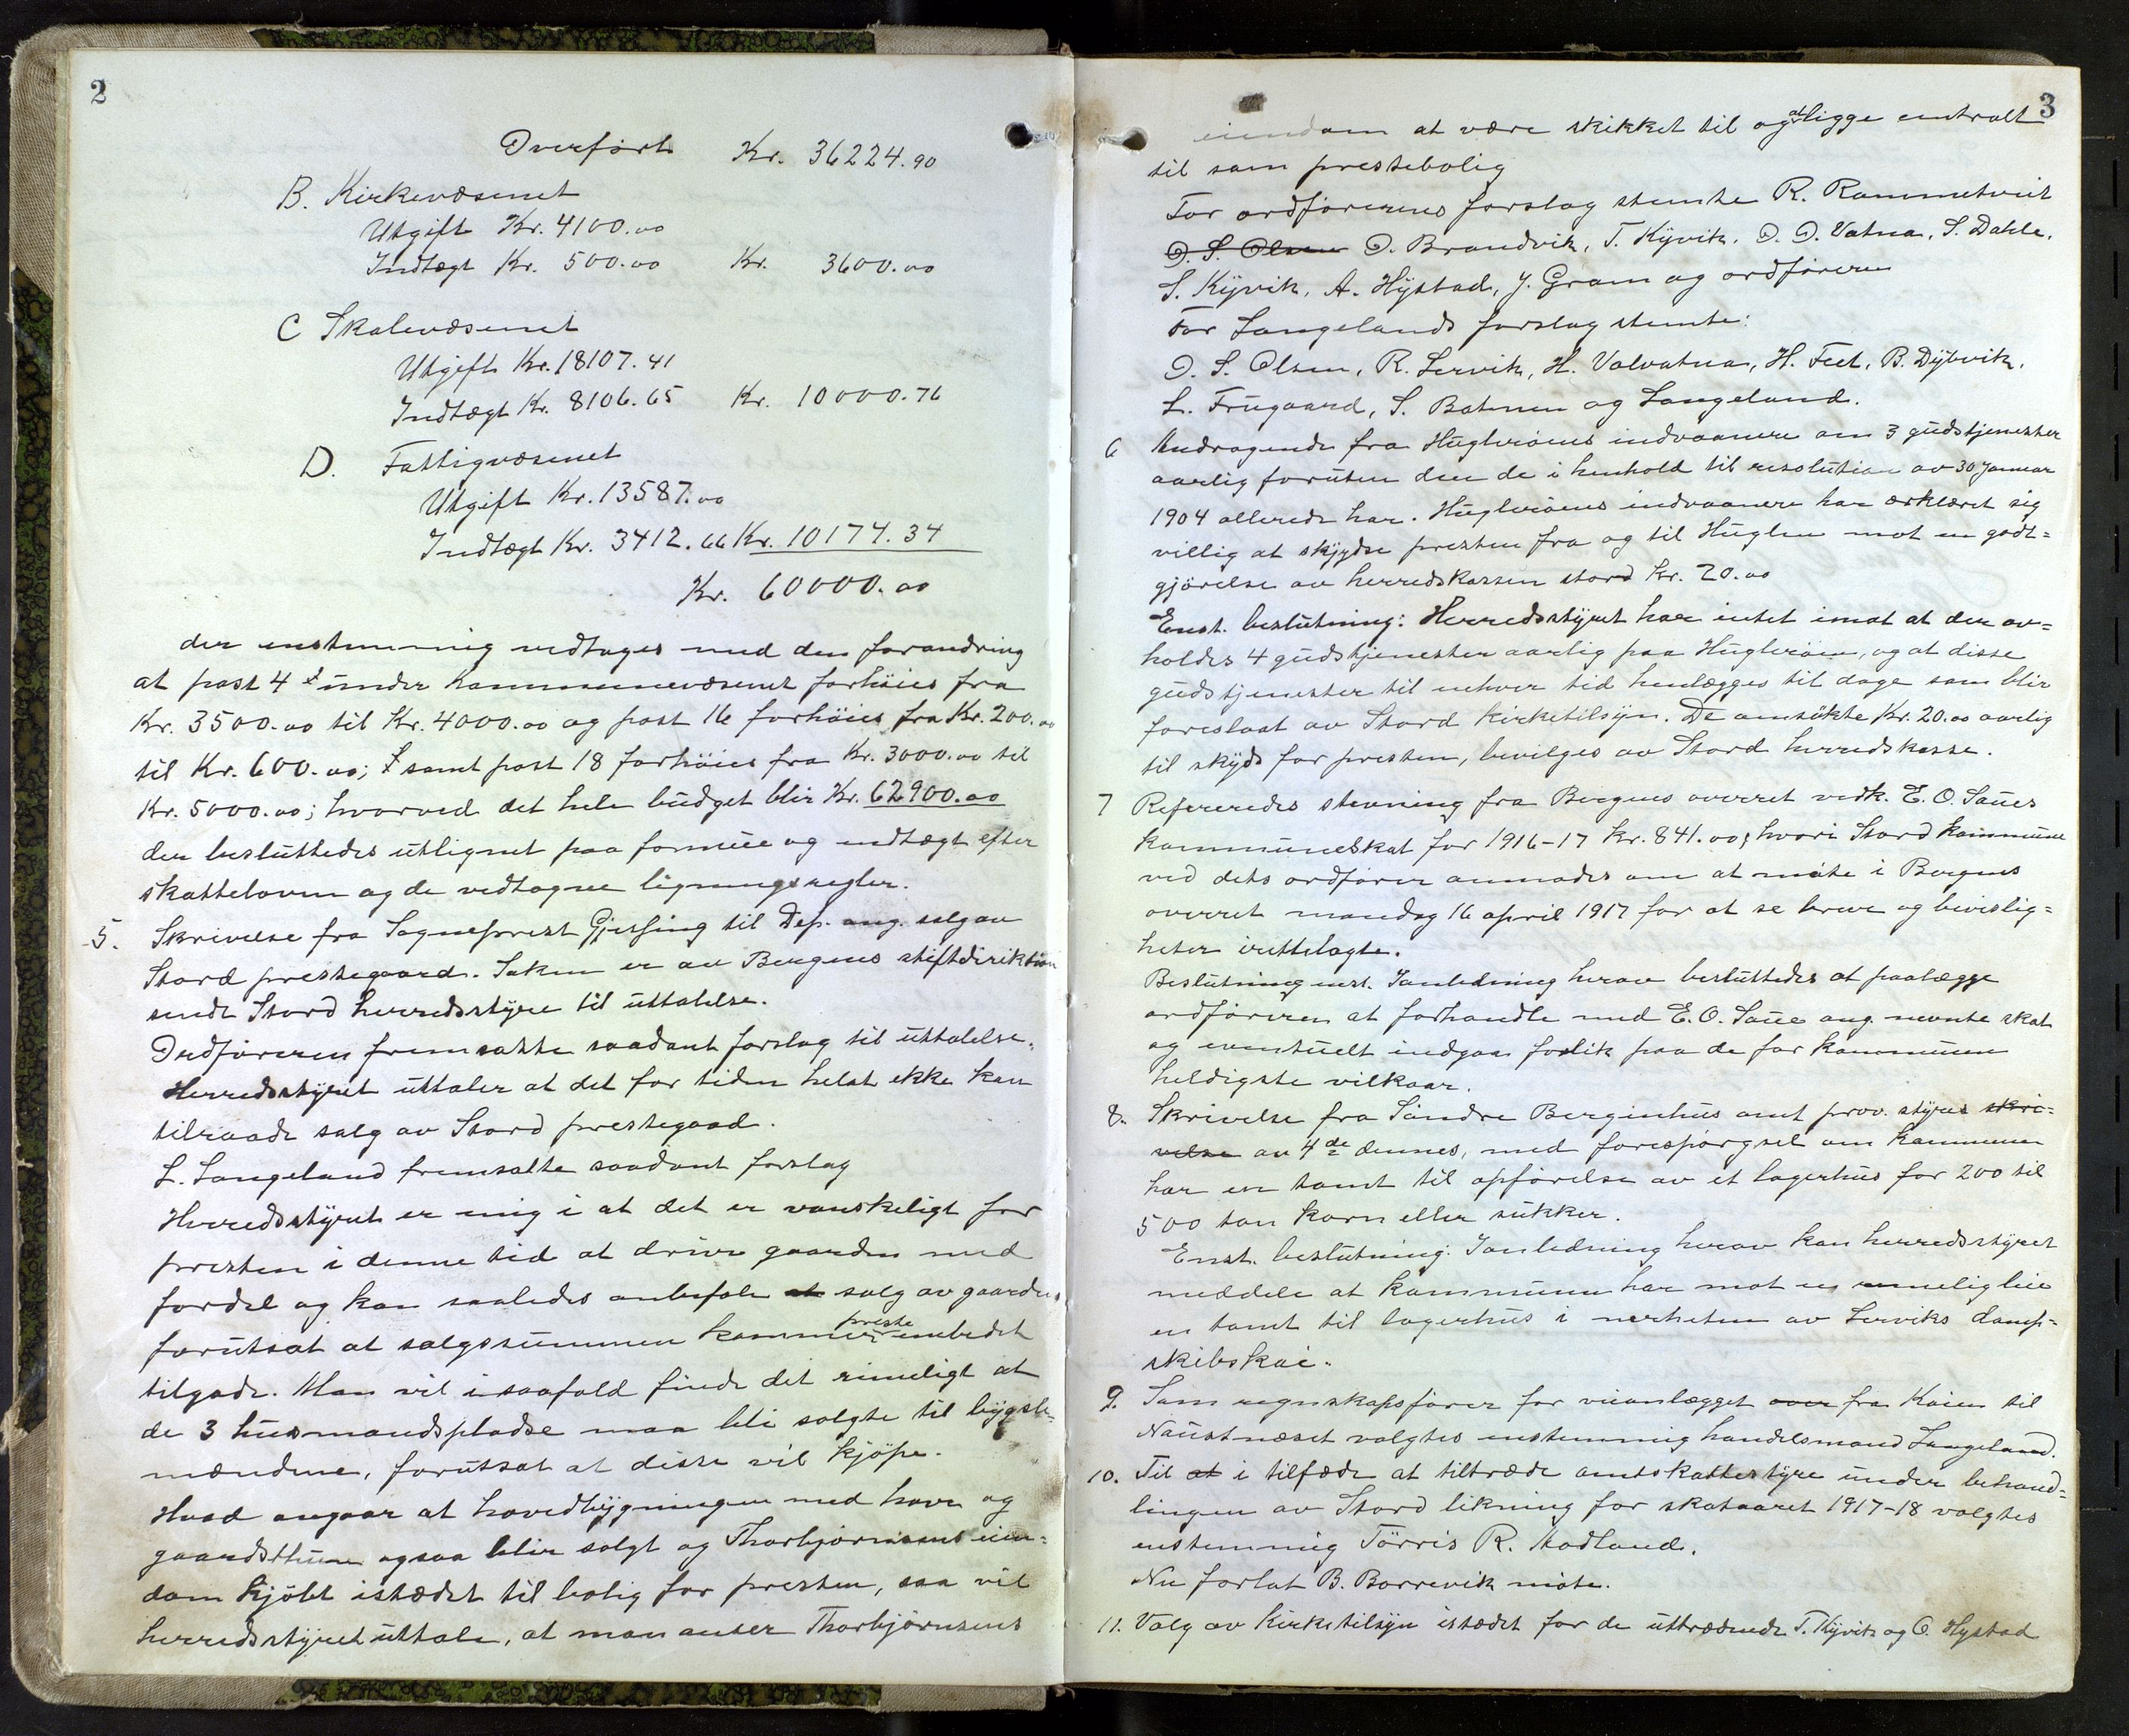 2
Overført Kr. 36224.90
B. Kirkevæsenet
Utgift Kr. 4100.00
Indtægt Kr. 500.00 Kr. 3600.00
C Skolevæsenet
Utgift Kr. 18107.41
Indtægt Kr. 8106.65 Kr. 10000.76
D. Fattigvæsenet
Utgift Kr. 13587.00
Indtægt Kr. 3412.66 Kr. 10174.34
Kr. 60000.00
der enstemmig vedtages med den forandring
at post 4 under kommunevæsenet forhöies fra
Kr. 3500.00 til Kr. 4000.00 og post 16 forhöies fra Kr. 200.00
til Kr. 600.00; samt post 18 forhöies fra Kr. 3000.00 til
Kr. 5000.00; hvorved det hele budget blir Kr. 62900.00
der besluttedes utlignet paa formue og indtægt efter
skatteloven og de vedtagne ligningsregler.
5. Skrivelse fra Sogneprest Gjessing til Dep. ang. salg av
Stord prestegaard. Saken er av Bergens stiftdirektion
sendt Stord herredsstyre til uttalelse.
Ordföreren fremsatte saadant forslag til uttalelse.
Herredsstyret uttaler at det for tiden helst ikke kan
tilraade salg av Stord prestegaad.
L. Langeland fremsatte saadant forslag
Herredsstyret er enig i at det er vanskeligt for
presten i denne tid at drive gaarden med
fordel og kan saaledes anbefale at salg av gaarden
forutsat at salgssummen kommer presteembedet
tilgode. Man vil i saafald finde det rimeligt at
de 3 husmandspladse maa bli solgte til bygsel-
mændene, forutsat at disse vil kjöpe.
Hvad angaar at hovedbygningen med have og
gaardsthun ogsaa blir solgt og Thorbjörnsens eien-
dom kjöbt istedet til bolig for presten, saa vil
herredsstyret uttale, at man anser Thorbjörnsens
3
eiendom at være skikket til og at ligge centralt
til som prestebolig
For ordförerens forslag stemte R. Rommetveit
O. S. Olsen O. Brandvik, T. Kyvik, O. O. Vatna, S. Dahle,
S. Kyvik, A. Hystad, J. Gram og ordföreren
For Langelands forslag stemte:
O. S. Olsen, R. Lervik, H. Valvatna, H. Feet, B. Dybvik,
L. Frugaard, S. Batmen og Langeland.
6 Andragende fra Huglerøens indvaanere om 3 gudstjenester
aarlig foruten den de i henhold til resolution av 30 Januar
1904 allerede har. Huglerøens indvaanere har erklæret sig
villig at skydse presten fra og til Huglen mot en godt-
gjörelse av herredskassen stord kr. 20.00
Enst. beslutning: Herredsstyret har intet imot at der av-
holdes 4 gudstjenester aarlig paa Hugleröen, og at disse
gudstjenester til enhver tid henlægges til dage som blir
foreslaat av Stord kirketilsyn. De ansökte Kr. 20.00 aarlig
til skyds for presten, bevilges av Stord herredskasse.
7 Refereredes stevning fra Bergens overret vedk. E. O. Saues
kommuneskat for 1916-17 kr. 841.00; hvori Stord kommune
ved dets ordförer anmodes om at möte i Bergens
overret mandag 16 april 1917 for at se breve og bevislig-
heter irettelagte.
Beslutning enst. Ianledning herav besluttedes at paalægge
ordföreren at forhandle med E. O. Saue ang. nevnte skat
og eventuelt indgaa forlik paa de for kommunen
heldigste vilkaar.
8. Skrivelse fra Söndre Bergenhus amt prov. styres skri-
velse av 4de dennes, med forespörgsel om kommunen
har en tomt til opförelse av et lagerhus for 200 til
500 ton korn eller sukker.
Enst. beslutning: Ianledning herav kan herredsstyret
meddele at kommunen har mot en rimelig leie
en tomt til lagerhus i nerheten av Lerviks damp-
skibskai.
9. Som regnskapsförer for veianlægget over fra Kaien til
Naustneset valgtes enstemmig handelsmand Langeland.
10. Til at i tilfælde at tiltræde amtskattestyre under behand-
lingen av Stord likning for skataaret 1917-18 valgtes
enstemmig Törris R. Hodland.
Nu forlot B. Borrevik möte.
11. Valg av Kirketilsyn istedet for de uttrædende T. Kyvik og O. Hystad